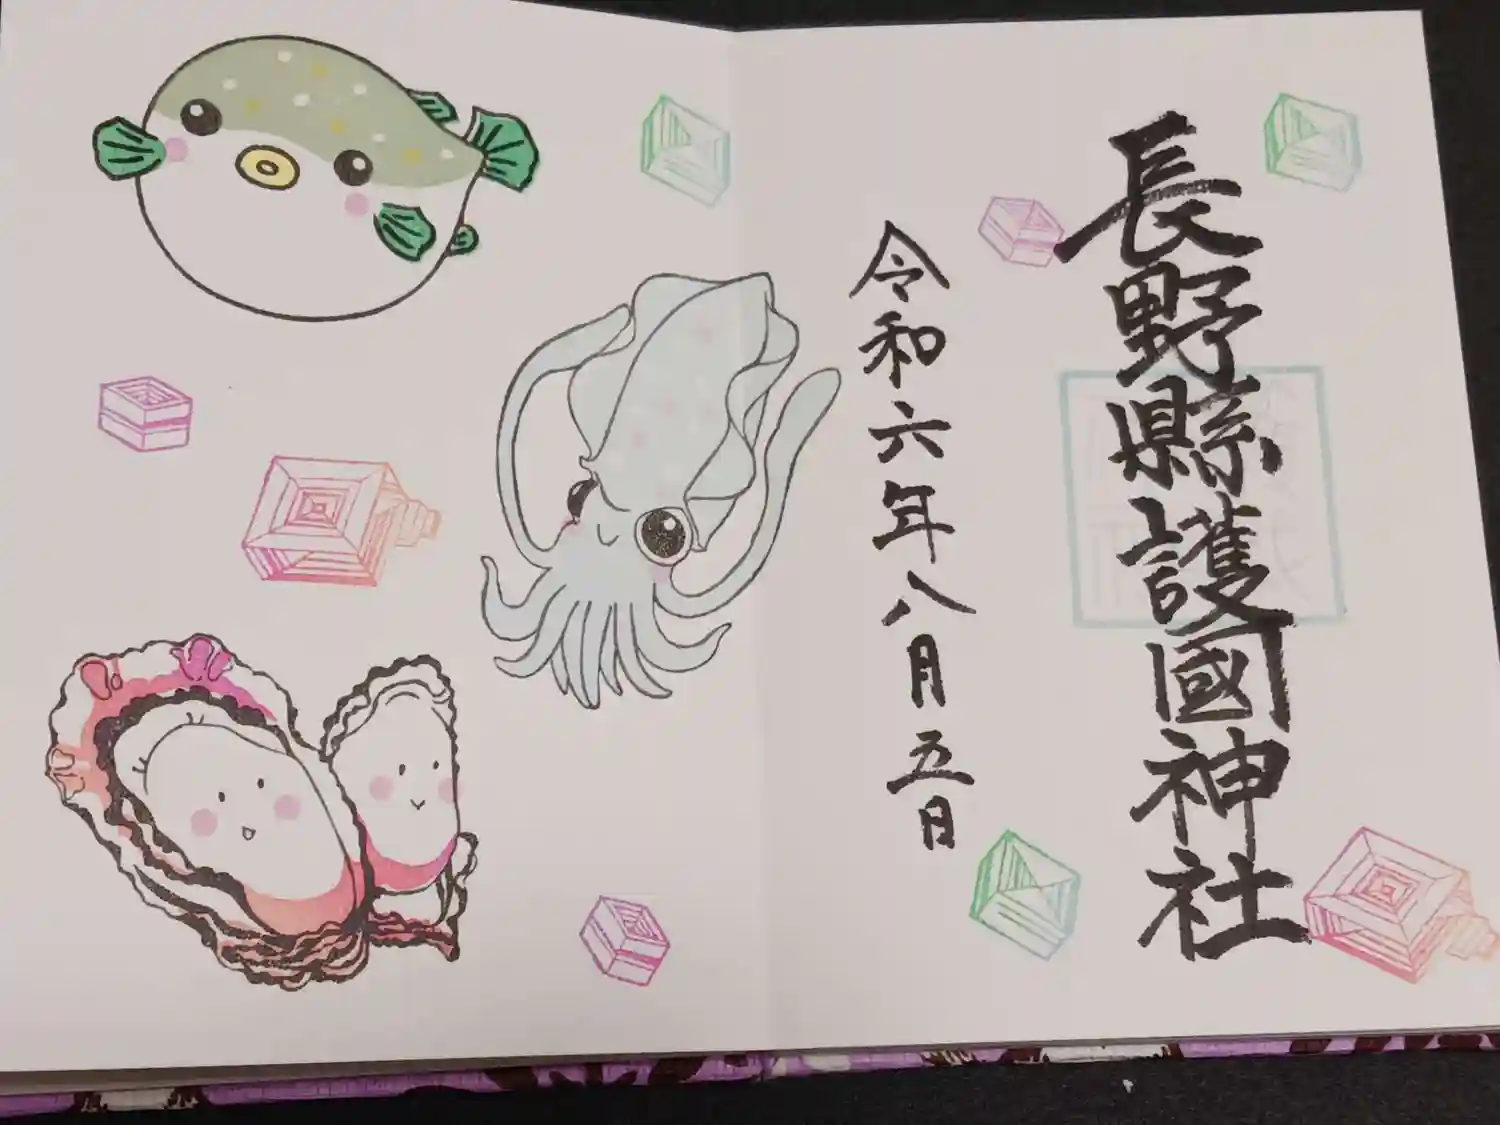 長野縣護國神社
令和六年八月五日